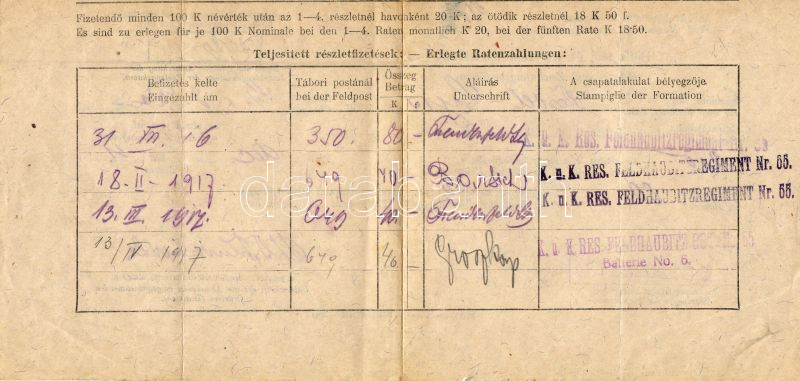 Fizetendő minden 100 K névérték után az 1—4. részletnél havonként 20 K; az ötödik részletnél 18 K 50 f.
Es sind zu erlegen für je 100 K Nominale bei den 1—4. Raten monatlich K 20, bei der fünften Rate K 18·50.
Teljesített részletfizetések: — Erlegte Ratenzahlungen:
Befizetés kelte
Eingezahlt am
Tábori postánál
bei der Feldpost
Összeg
Betrag
K
Aláírás
Unterschrift
A csapatalakulat bélyegzője
Stampiglie der Formation
31 16 350 80
K. u. K. RES. FELDHAUBITZREGIMENT Nr. 55
18. II - 1917 649 40
K. u. K. RES. FELDHAUBITZREGIMENT Nr. 55.
13. III 1917. 649 40
K. u. K. RES. FELDHAUBITZREGIMENT Nr. 55.
13/IV 1917 649 40
K. u. K. RES. FELDHAUBITZ
Batterie No. 6.
darabanth